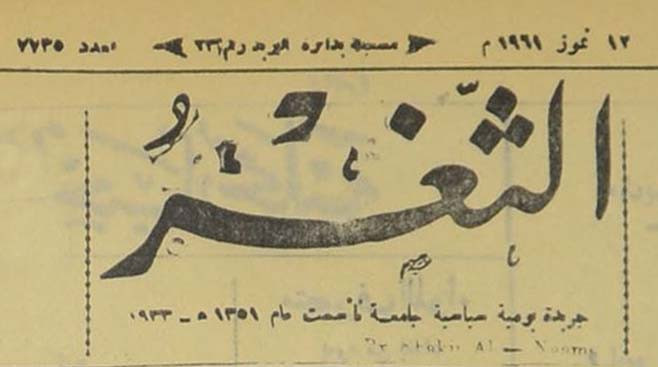 ١٢ تموز ١٩٦١ م مسجلة بدائرة البريد رقم ٢٣٦ العدد ٧٧٣٥
الثّغْرُ
جريدة يومية سياسية جامعة تأسست عام ١٣٥١ ه ـ ١٩٣٣
Dr Shakir Al - Neama